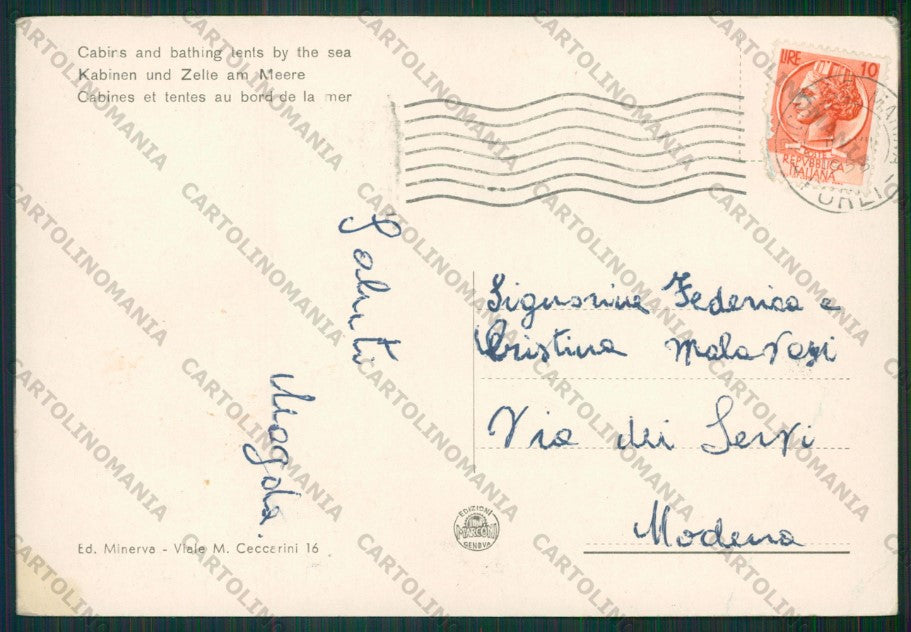 Cabins and bathing tents by the sea
Kabinen und Zelte am Meere
Cabines et tentes au bord de la mer
LIRE 10
POSTE
REPVBBLICA
ITALIANA
FORLI
Saluti
Magda.
Signorine Federica e
Cristina Malavasi
Via dei Servi
Modena
EDIZIONI
MARCONI
GENOVA
Ed. Minerva - Viale M. Ceccarini 16
CARTOLINOMANIA